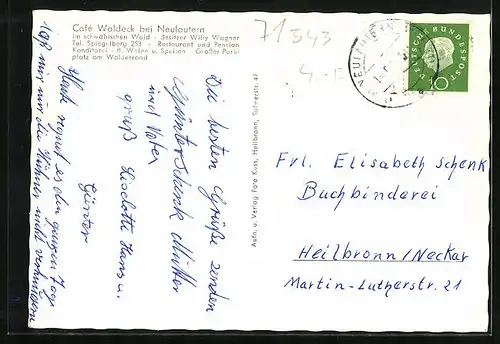 Café Waldeck bei Neulautern
im schwäbischen Wald - Besitzer Willy Wagner
Tel. Spiegelberg 253 - Restaurant und Pension
Konditorei - ff. Weine u. Speisen - Großer Park-
platz am Waldestrand
71543
Die besten Grüße senden
Günter Schenk Mutter
und Vater
gruß Liselotte Hans u.
Günter
Heute regnet es den ganzen Tag
laß mir nur die Hühner nicht verhungern
Aufn. u. Verlag Foto Kuss, Heilbronn, Sülmerstr. 47
DEUTSCHE BUNDESPOST
10
Frl. Elisabeth Schenk
Buchbinderei
Heilbronn/Neckar
Martin-Lutherstr. 21